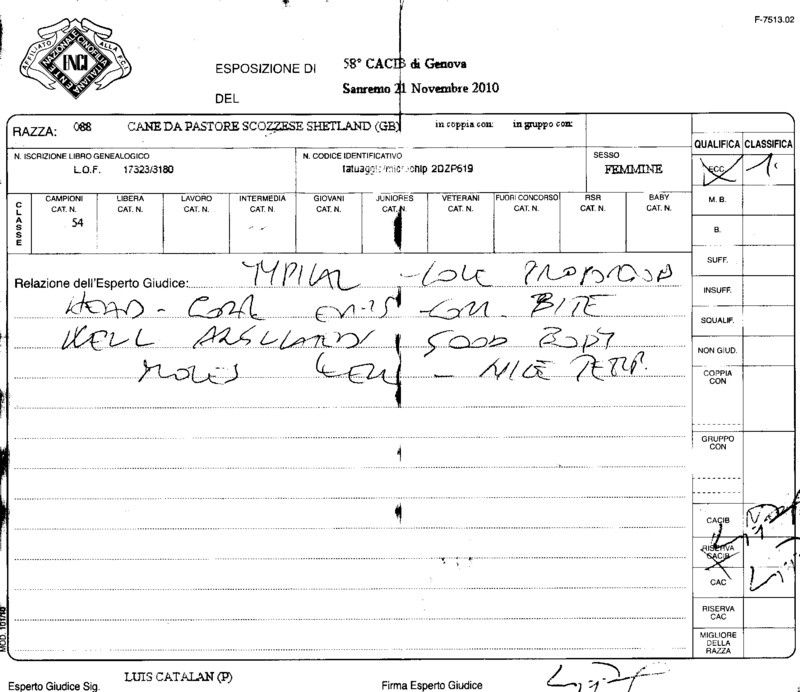 F-7513.02
AFFILIATO ALLA F.C.I.
ENTE NAZIONALE CINOFILIA ITALIANA
ENCI
ESPOSIZIONE DI 58° CACIB di Genova
DEL Sanremo 21 Novembre 2010
RAZZA: 088 CANE DA PASTORE SCOZZESE SHETLAND (GB) in coppia con: in gruppo con:
QUALIFICA CLASSIFICA
N. ISCRIZIONE LIBRO GENEALOGICO N. CODICE IDENTIFICATIVO SESSO
L.O.F. 17323/3180 tatuaggio/microchip 2DZP619 FEMMINE
ECC. 1.
CLASSE
CAMPIONI CAT. N. LIBERA CAT. N. LAVORO CAT. N. INTERMEDIA CAT. N. GIOVANI CAT. N. JUNIORES CAT. N. VETERANI CAT. N. FUORI CONCORSO CAT. N. RSR CAT. N. BABY CAT. N.
54
M. B.
B.
SUFF.
INSUFF.
SQUALIF.
NON GIUD.
COPPIA CON
GRUPPO CON
CACIB
RISERVA CACIB
CAC
RISERVA CAC
MIGLIORE DELLA RAZZA
Relazione dell'Esperto Giudice: TYPICAL
HEAD - BITE
WELL GOOD BODY
MOVES WELL - NICE TEMP.
MOD. 101/10
Esperto Giudice Sig. LUIS CATALAN (P) Firma Esperto Giudice